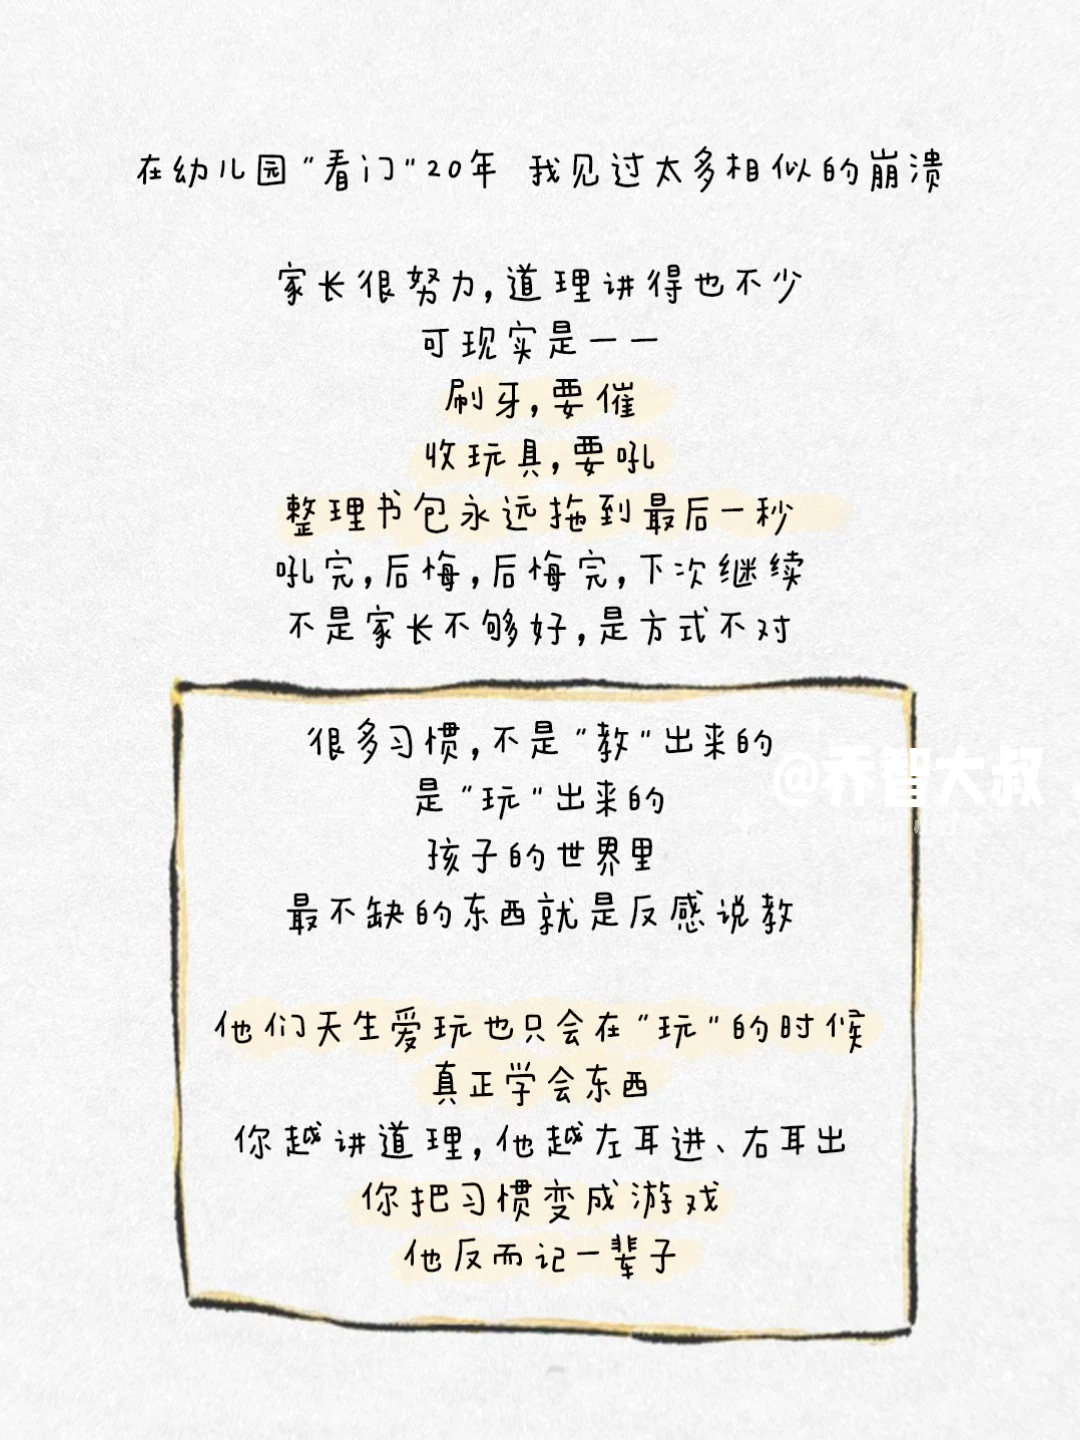 在幼儿园"看门"20年 我见过太多相似的崩溃
家长很努力,道理讲得也不少
可现实是一一
刷牙,要催
收玩具,要吼
整理书包永远拖到最后一秒
吼完,后悔,后悔完,下次继续
不是家长不够好,是方式不对
很多习惯,不是"教"出来的
@乔智大叔
是"玩"出来的
孩子的世界里
最不缺的东西就是反感说教
他们天生爱玩也只会在"玩"的时候
真正学会东西
你越讲道理,他越左耳进、右耳出
你把习惯变成游戏
他反而记一辈子